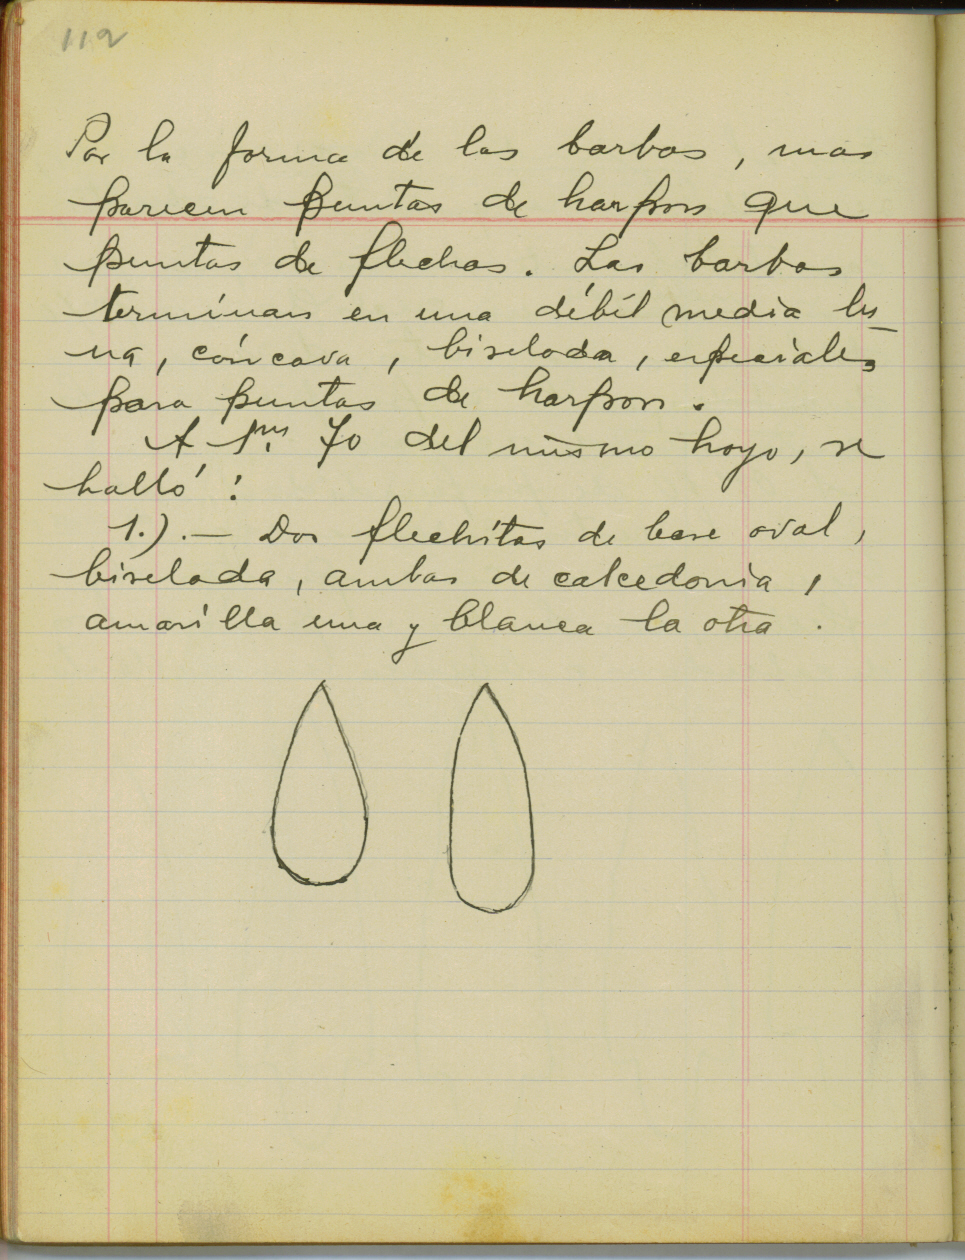 112
Por la forma de las barbas, mas
parecen puntas de harpon que
puntas de flechas. Las barbas
terminan en una débil media lu_
na, cóncava, biselada, especiales
para puntas de harpon.
A 1m. 70 del mismo hoyo, se
halló:
1.).— Dos flechitas de base oval,
biselada, ambas de calcedonia,
amarilla una y blanca la otra.